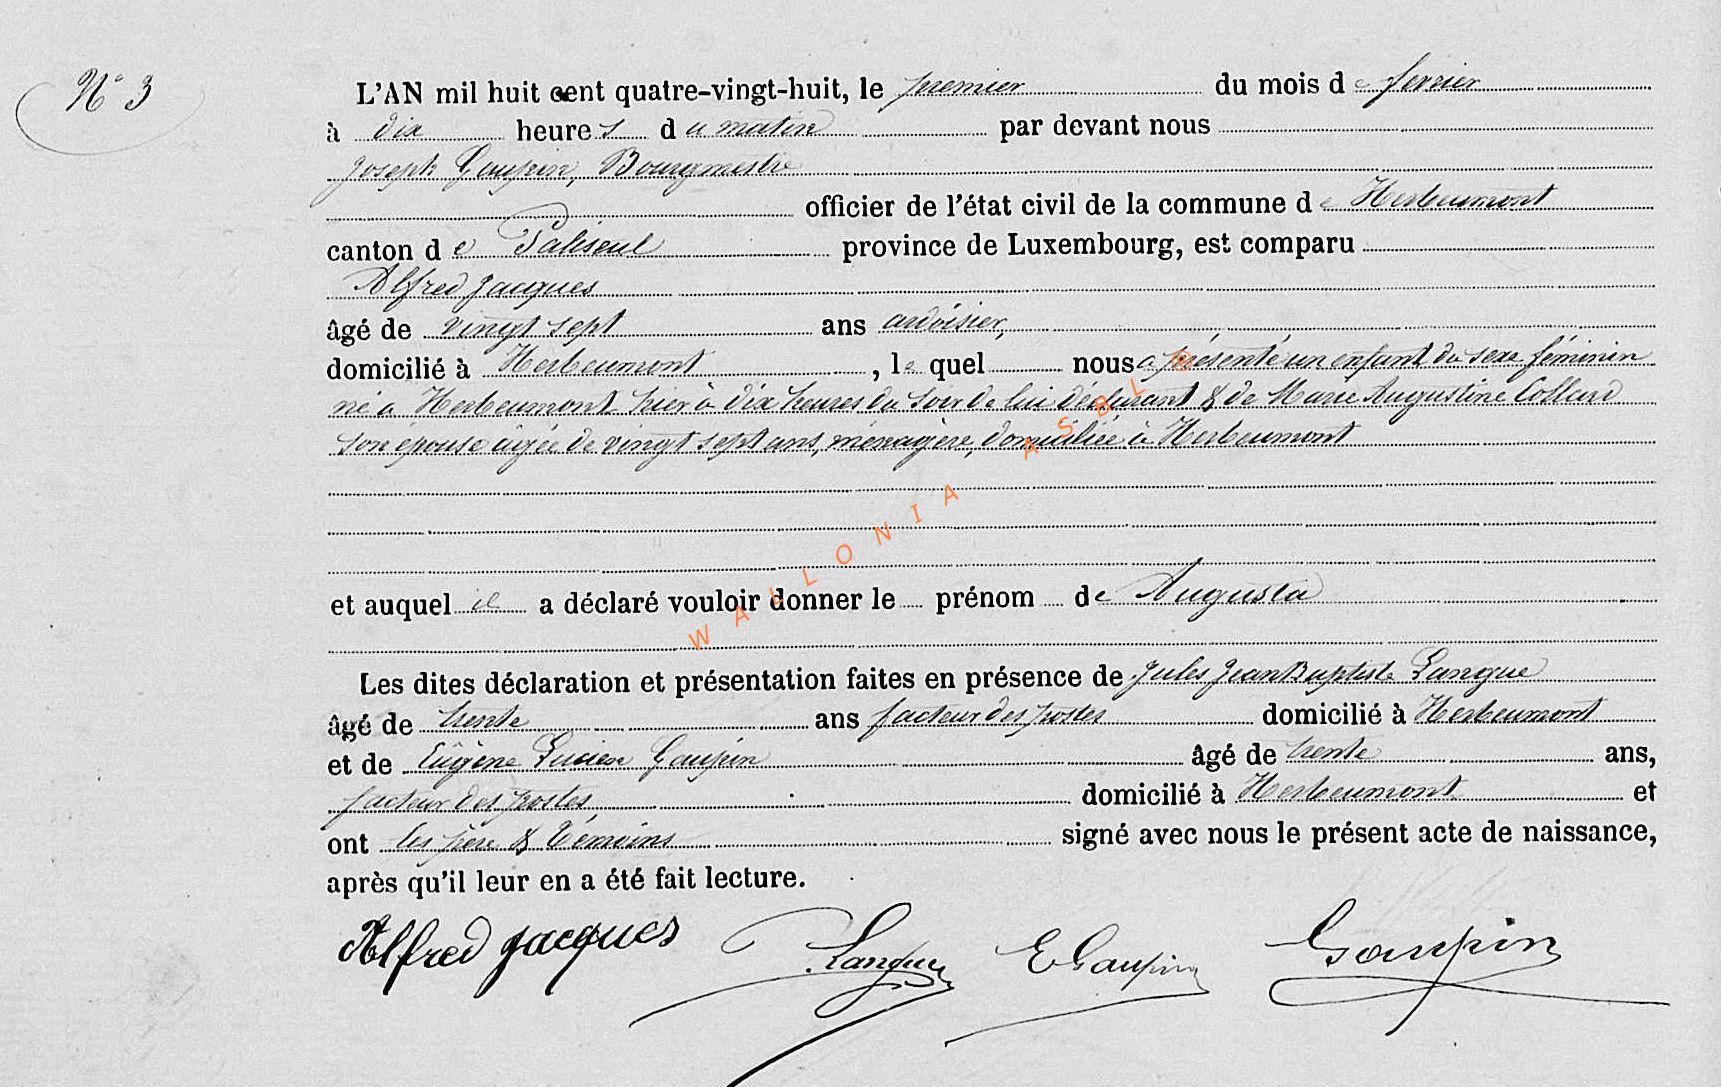 N° 3
L'AN mil huit cent quatre-vingt-huit, le premier du mois de fevrier
à dix heures du matin par devant nous
Joseph Gaupin, Bourgmestre
officier de l'état civil de la commune de Herbeumont
canton de Paliseul province de Luxembourg, est comparu
Alfred Jacques
âgé de vingt sept ans ardoisier,
domicilié à Herbeumont, le quel nous a présenté un enfant du sexe féminin
né à Herbeumont hier à dix heures du soir de lui déclarant & de Marie Augustine Collard
son épouse agée de vingt sept ans, ménagère, domiciliée à Herbeumont
et auquel il a déclaré vouloir donner le prénom de Augusta
Les dites déclaration et présentation faites en présence de Jules Jean Baptiste Langue
âgé de trente ans facteur des postes domicilié à Herbeumont
et de Eugène Lucien Gaupin âgé de trente ans,
facteur des postes domicilié à Herbeumont et
ont les père & témoins signé avec nous le présent acte de naissance,
après qu'il leur en a été fait lecture.
Alfred Jacques Langue E Gaupin Gaupin
WALLONIA ASBL ®